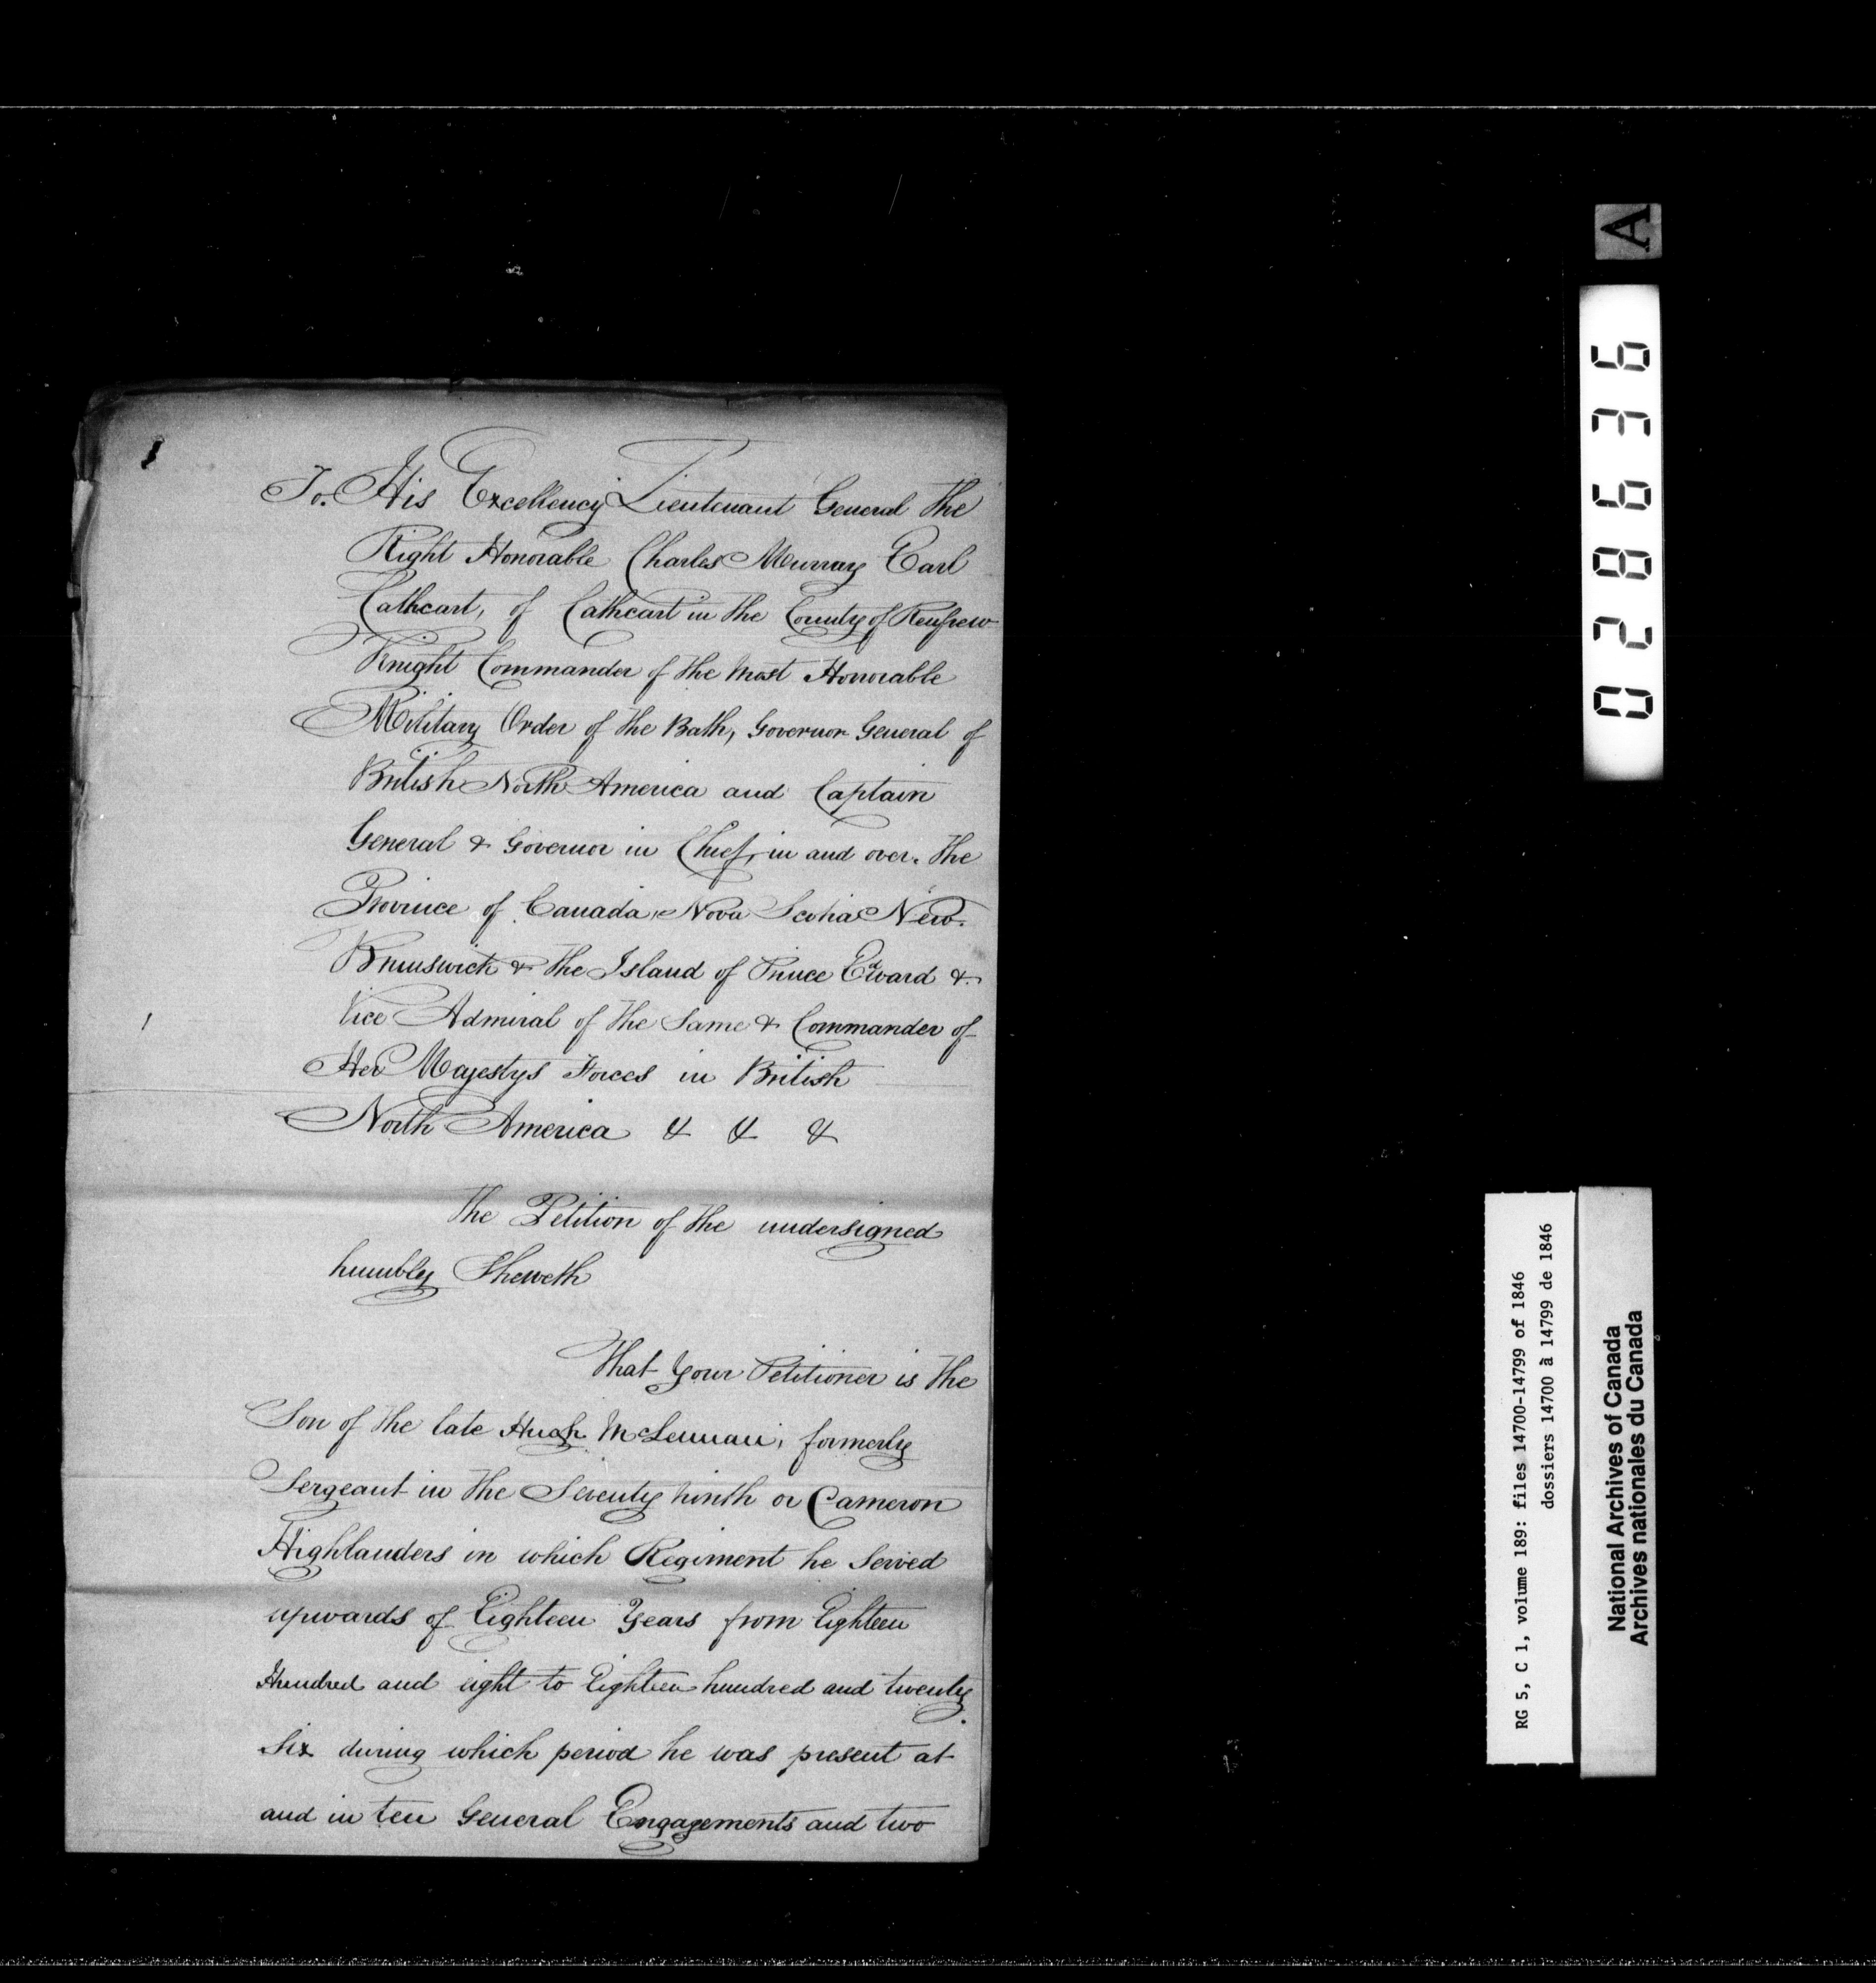 To. His Excellency Lieutenant General the
Right Honorable Charles Murray Earl
Cathcart, of Cathcart in the County of Renfrew
Knight Commander of the most Honorable
Military Order of the Bath, Governor General of
British North America and Captain
General & Governor in Chief, in and over. the
Province of Canada, Nova Scotia New.
Brunswick & the Island of Prince Edward &
Vice Admiral of the Same & Commander of
Her Majestys Forces in British
North America & & &
The Petition of the undersigned
humbly Sheweth
That Your Petitioner is the
Son of the late Hugh McLennan, formerly
Sergeant in the Seventy ninth or Cameron
Highlanders in which Regiment he Served
upwards of Eighteen Years from Eighteen
Hundred and eight to Eighteen hundred and twenty
Six during which period he was present at
and in ten General Engagements and two
A
028636
RG 5, C 1, volume 189: files 14700-14799 of 1846
dossiers 14700 à 14799 de 1846
National Archives of Canada
Archives nationales du Canada